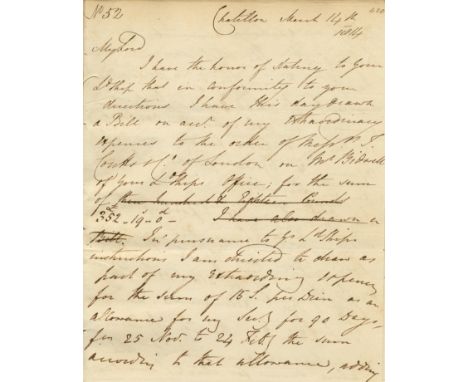 No 52 Chatillon March 14th
1814
My Lord
I have the honor of stating to your
Ldship that in conformity to your
directions I have this day drawn
a Bill on acct of my extraordinary
expenses to the order of Messrs T.
Coutts & Co of London on Mr Bidwell
of your Ldships Office, for the sum
of three hundred & Eighteen Pounds
352 - 19s - 0d - I have also drawn a
Bill. In pursuance to yr Ldships
instructions I am directed to draw as
part of my extraordiny expenses
for the sum of 15 S. per Diem as an
allowance for my Secy for 90 Days,
fm 25 Nov. to 24 Feby the sum
according to that allowance, adding